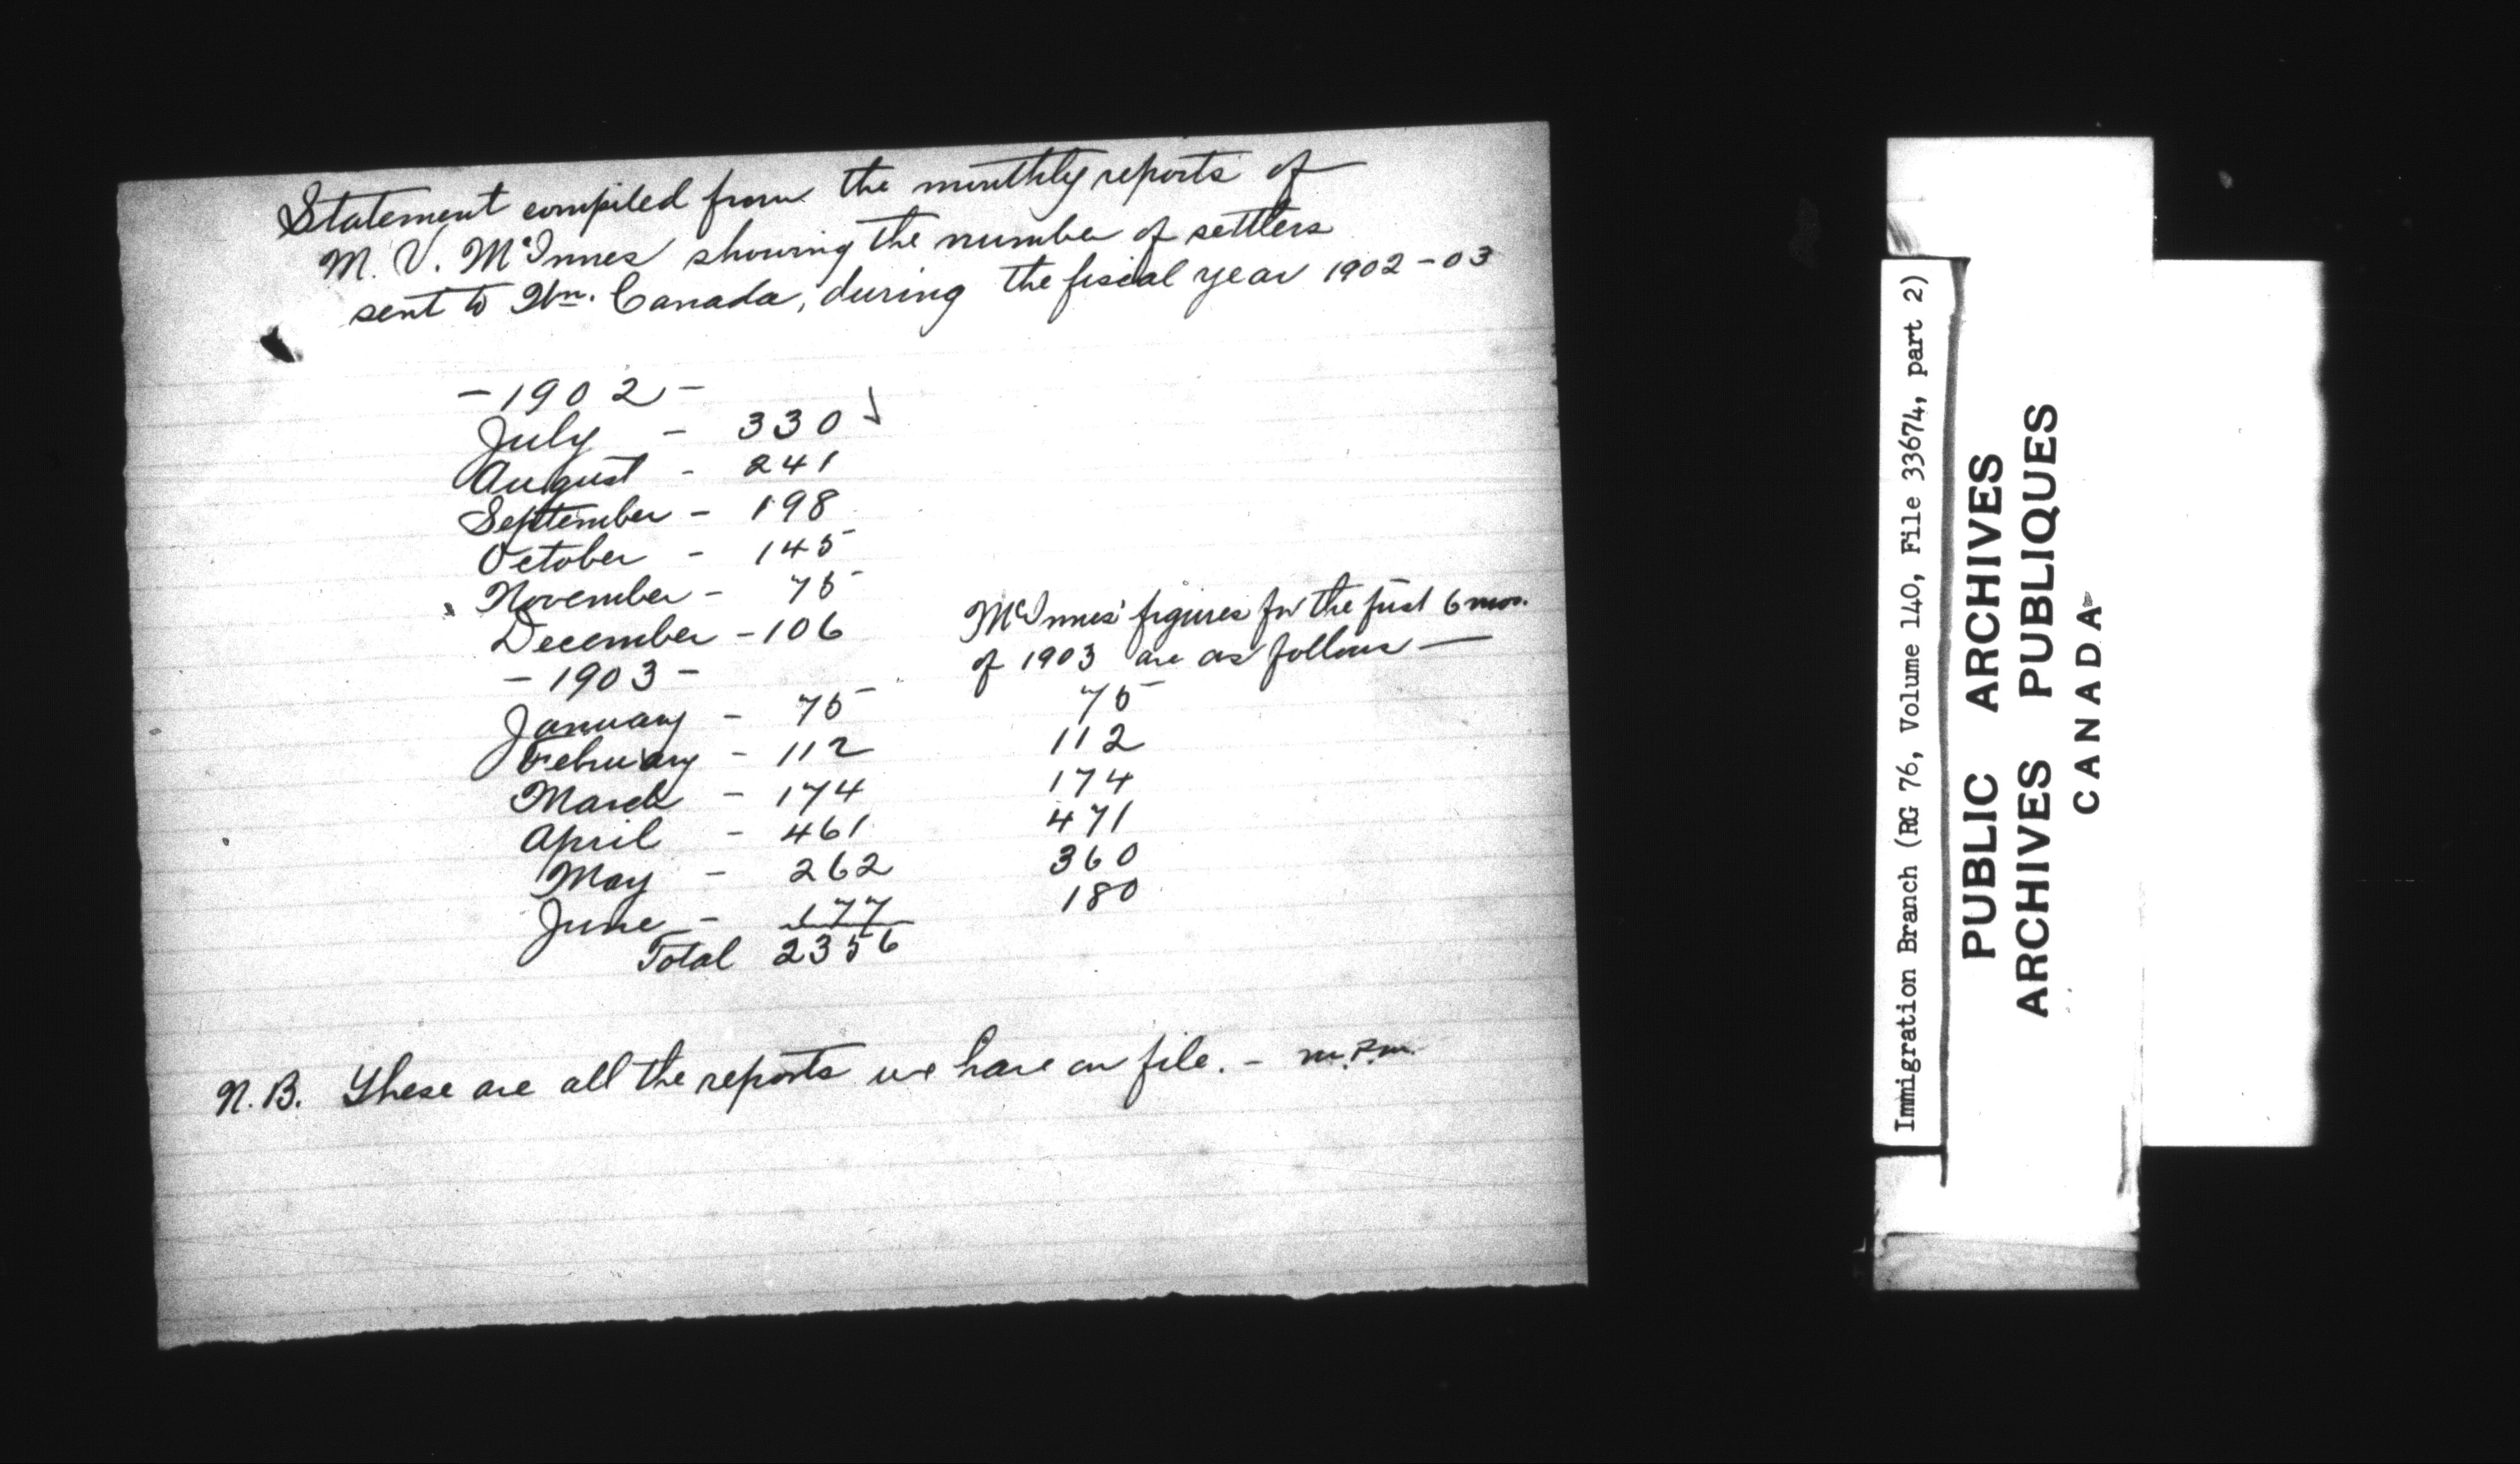 Statement compiled from the monthly reports of
M. V. McInnes showing the number of settlers
sent to Wn. Canada, during the fiscal year 1902-03
- 1902 -
July - 330
August - 241
September - 198
October - 145
November - 75
December - 106
- 1903 -
January - 75
February - 112
March - 174
April - 461
May - 262
June - 177
Total 2356
McInnes' figures for the first 6 mos.
of 1903 are as follows —
75
112
174
471
360
180
N.B. These are all the reports we have on file. -
Immigration Branch (RG 76, Volume 140, File 33674, part 2)
PUBLIC ARCHIVES
ARCHIVES PUBLIQUES
CANADA